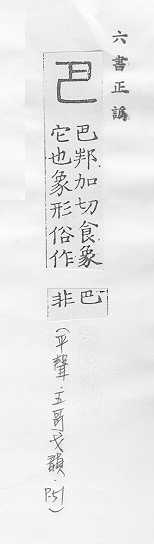 六書正譌
巴
巴邦加切食象
它也象形俗作
巴
非
(平聲.五哥戈韻.P.51)